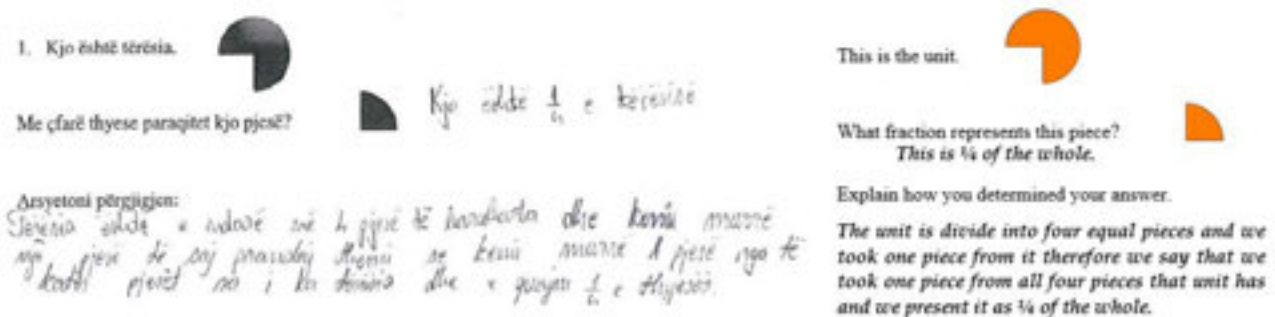 1. Kjo është tërësia.
Me çfarë thyese paraqitet kjo pjesë?
Kjo është 1/4 e tërësisë
Arsyetoni përgjigjen:
Tërësia është e ndarë në 4 pjesë të barabarta dhe kemi marrë
një pjesë të saj prandaj themi se kemi marrë 1 pjesë nga të
katër pjesët që i ka tërësia dhe e quajmë 1/4 e thyesës.
This is the unit.
What fraction represents this piece?
This is ¼ of the whole.
Explain how you determined your answer.
The unit is divide into four equal pieces and we
took one piece from it therefore we say that we
took one piece from all four pieces that unit has
and we present it as ¼ of the whole.